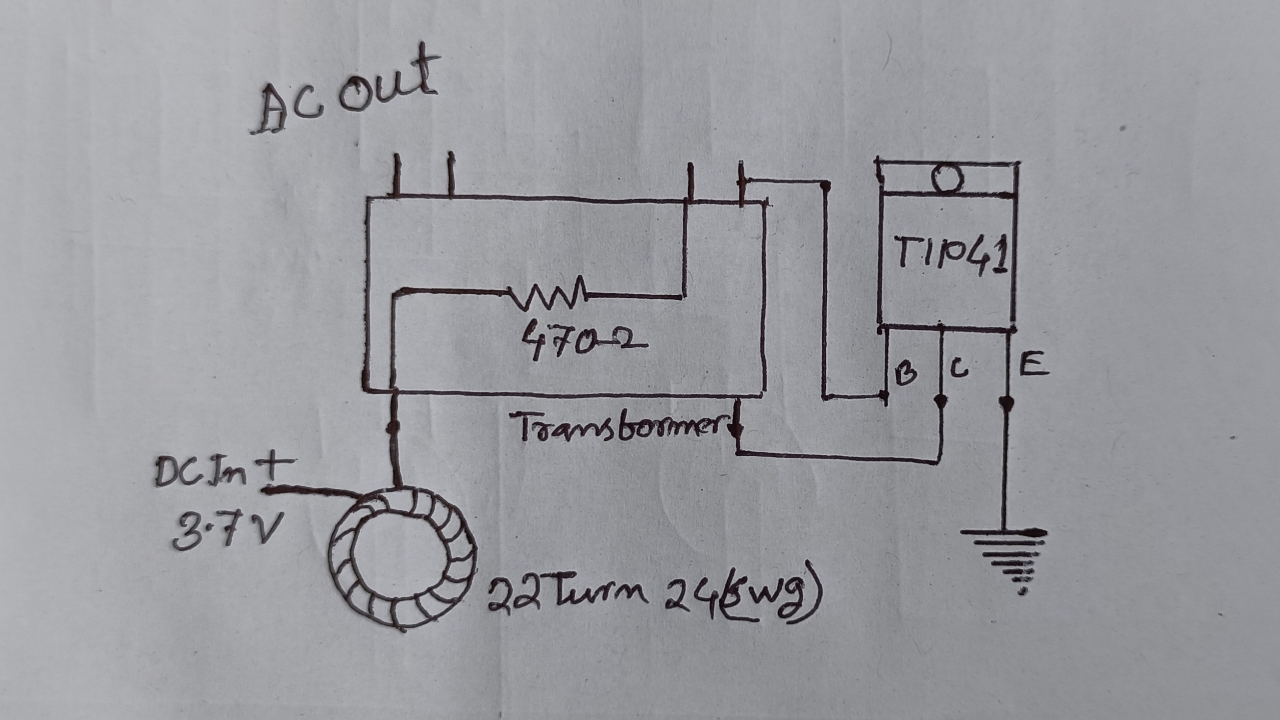 AC Out
TIP41
470Ω
B C E
Transformer
DC In +
3.7V
22 Turn 24(swg)